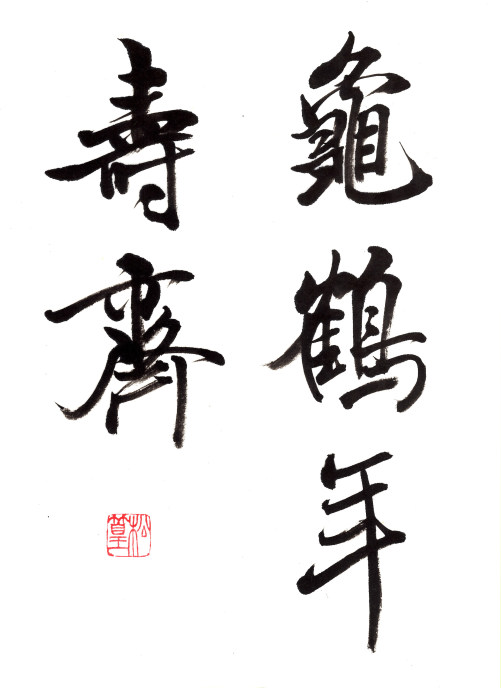 龜鶴年
壽齊